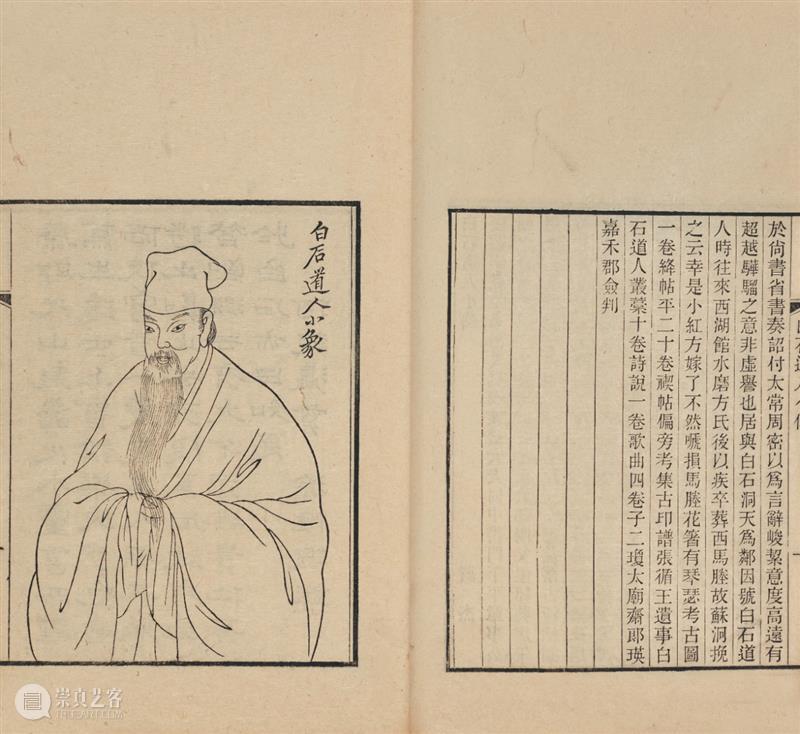 於尙書省書奏詔付太常周密以爲言辭峻絜意度高遠有
超越驊騮之意非虛譽也居與白石洞天爲鄰因號白石道
人時往來西湖館水磨方氏後以疾卒葬西馬塍故蘇泂挽
之云幸是小紅方嫁了不然嗁損馬塍花箸有琴瑟考古圖
一卷絳帖平二十卷禊帖偏旁考集古印譜張循王遺事白
石道人叢藁十卷詩說一卷歌曲四卷子二瓊太廟齋郞瑛
嘉禾郡僉判
白石道人小象
崇真艺客
TRUE-ART.COM